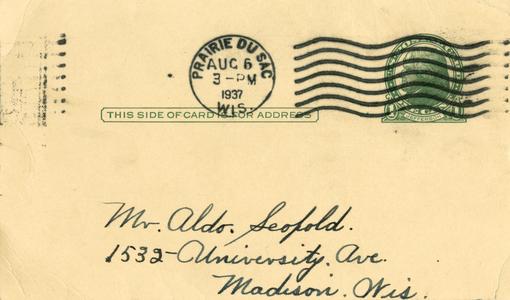 PRAIRIE DU SAC
AUG 6
3-PM
1937
WIS.
THIS SIDE OF CARD IS FOR ADDRESS
JEFFERSON
Mr. Aldo. Leopold.
1532 University. Ave.
Madison. Wis.